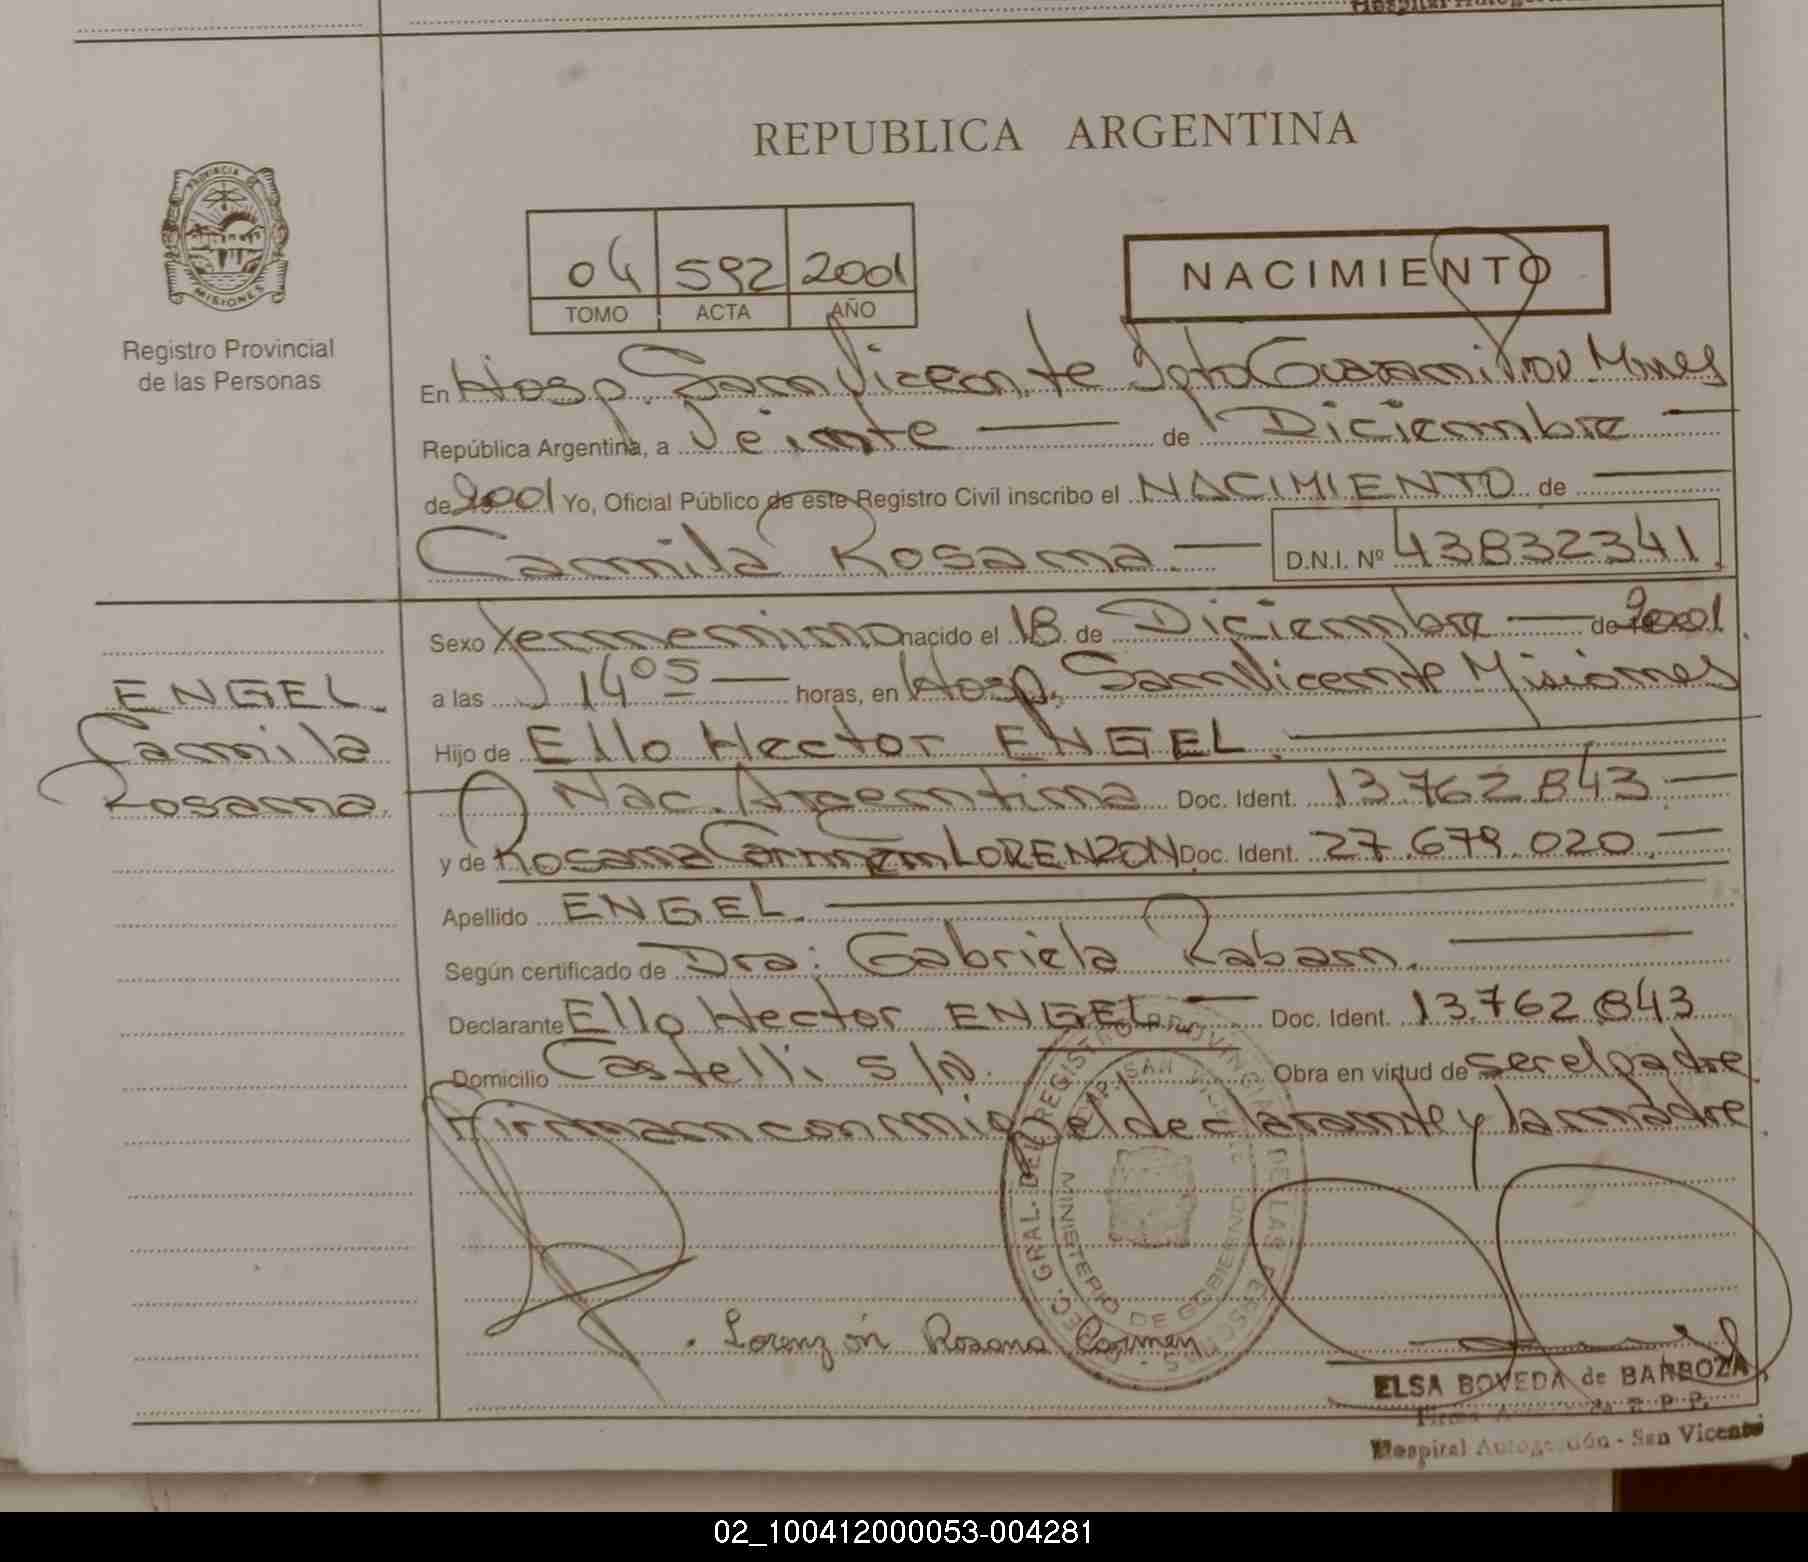 REPUBLICA ARGENTINA
PROVINCIA DE
MISIONES
Registro Provincial
de las Personas
04 592 2001
TOMO ACTA AÑO
NACIMIENTO
En Hosp. San Vicente Dpto Guaraní Prov. Mnes
República Argentina, a Veinte — de Diciembre —
de 2001 Yo, Oficial Público de este Registro Civil inscribo el NACIMIENTO de —
Camila Rosana. — D.N.I. Nº 43832341.
Sexo Femenino nacido el 18 de Diciembre — de 2001.
a las 14 05 — horas, en Hosp. San Vicente Misiones
ENGEL
Camila
Rosana.
Hijo de Ello Hector ENGEL. —
Nac. Argentina Doc. Ident. 13.762.843 —
y de Rosana Carmen LORENZON Doc. Ident. 27.679.020. —
Apellido ENGEL. —
Según certificado de Dra: Gabriela Raban. —
Declarante Ello Hector ENGEL — Doc. Ident. 13.762.843
Domicilio Castelli s/n. Obra en virtud de ser el padre.
Firman conmigo el declarante y la madre.
DEC. GRAL. DEL REGISTRO PROVINCIAL DE LAS PERSONAS
MINISTERIO DE GOBIERNO
Lorenzón Rosana Carmen
ELSA BOVEDA de BARBOZA
Hospital Autogestión - San Vicente
02_100412000053-004281